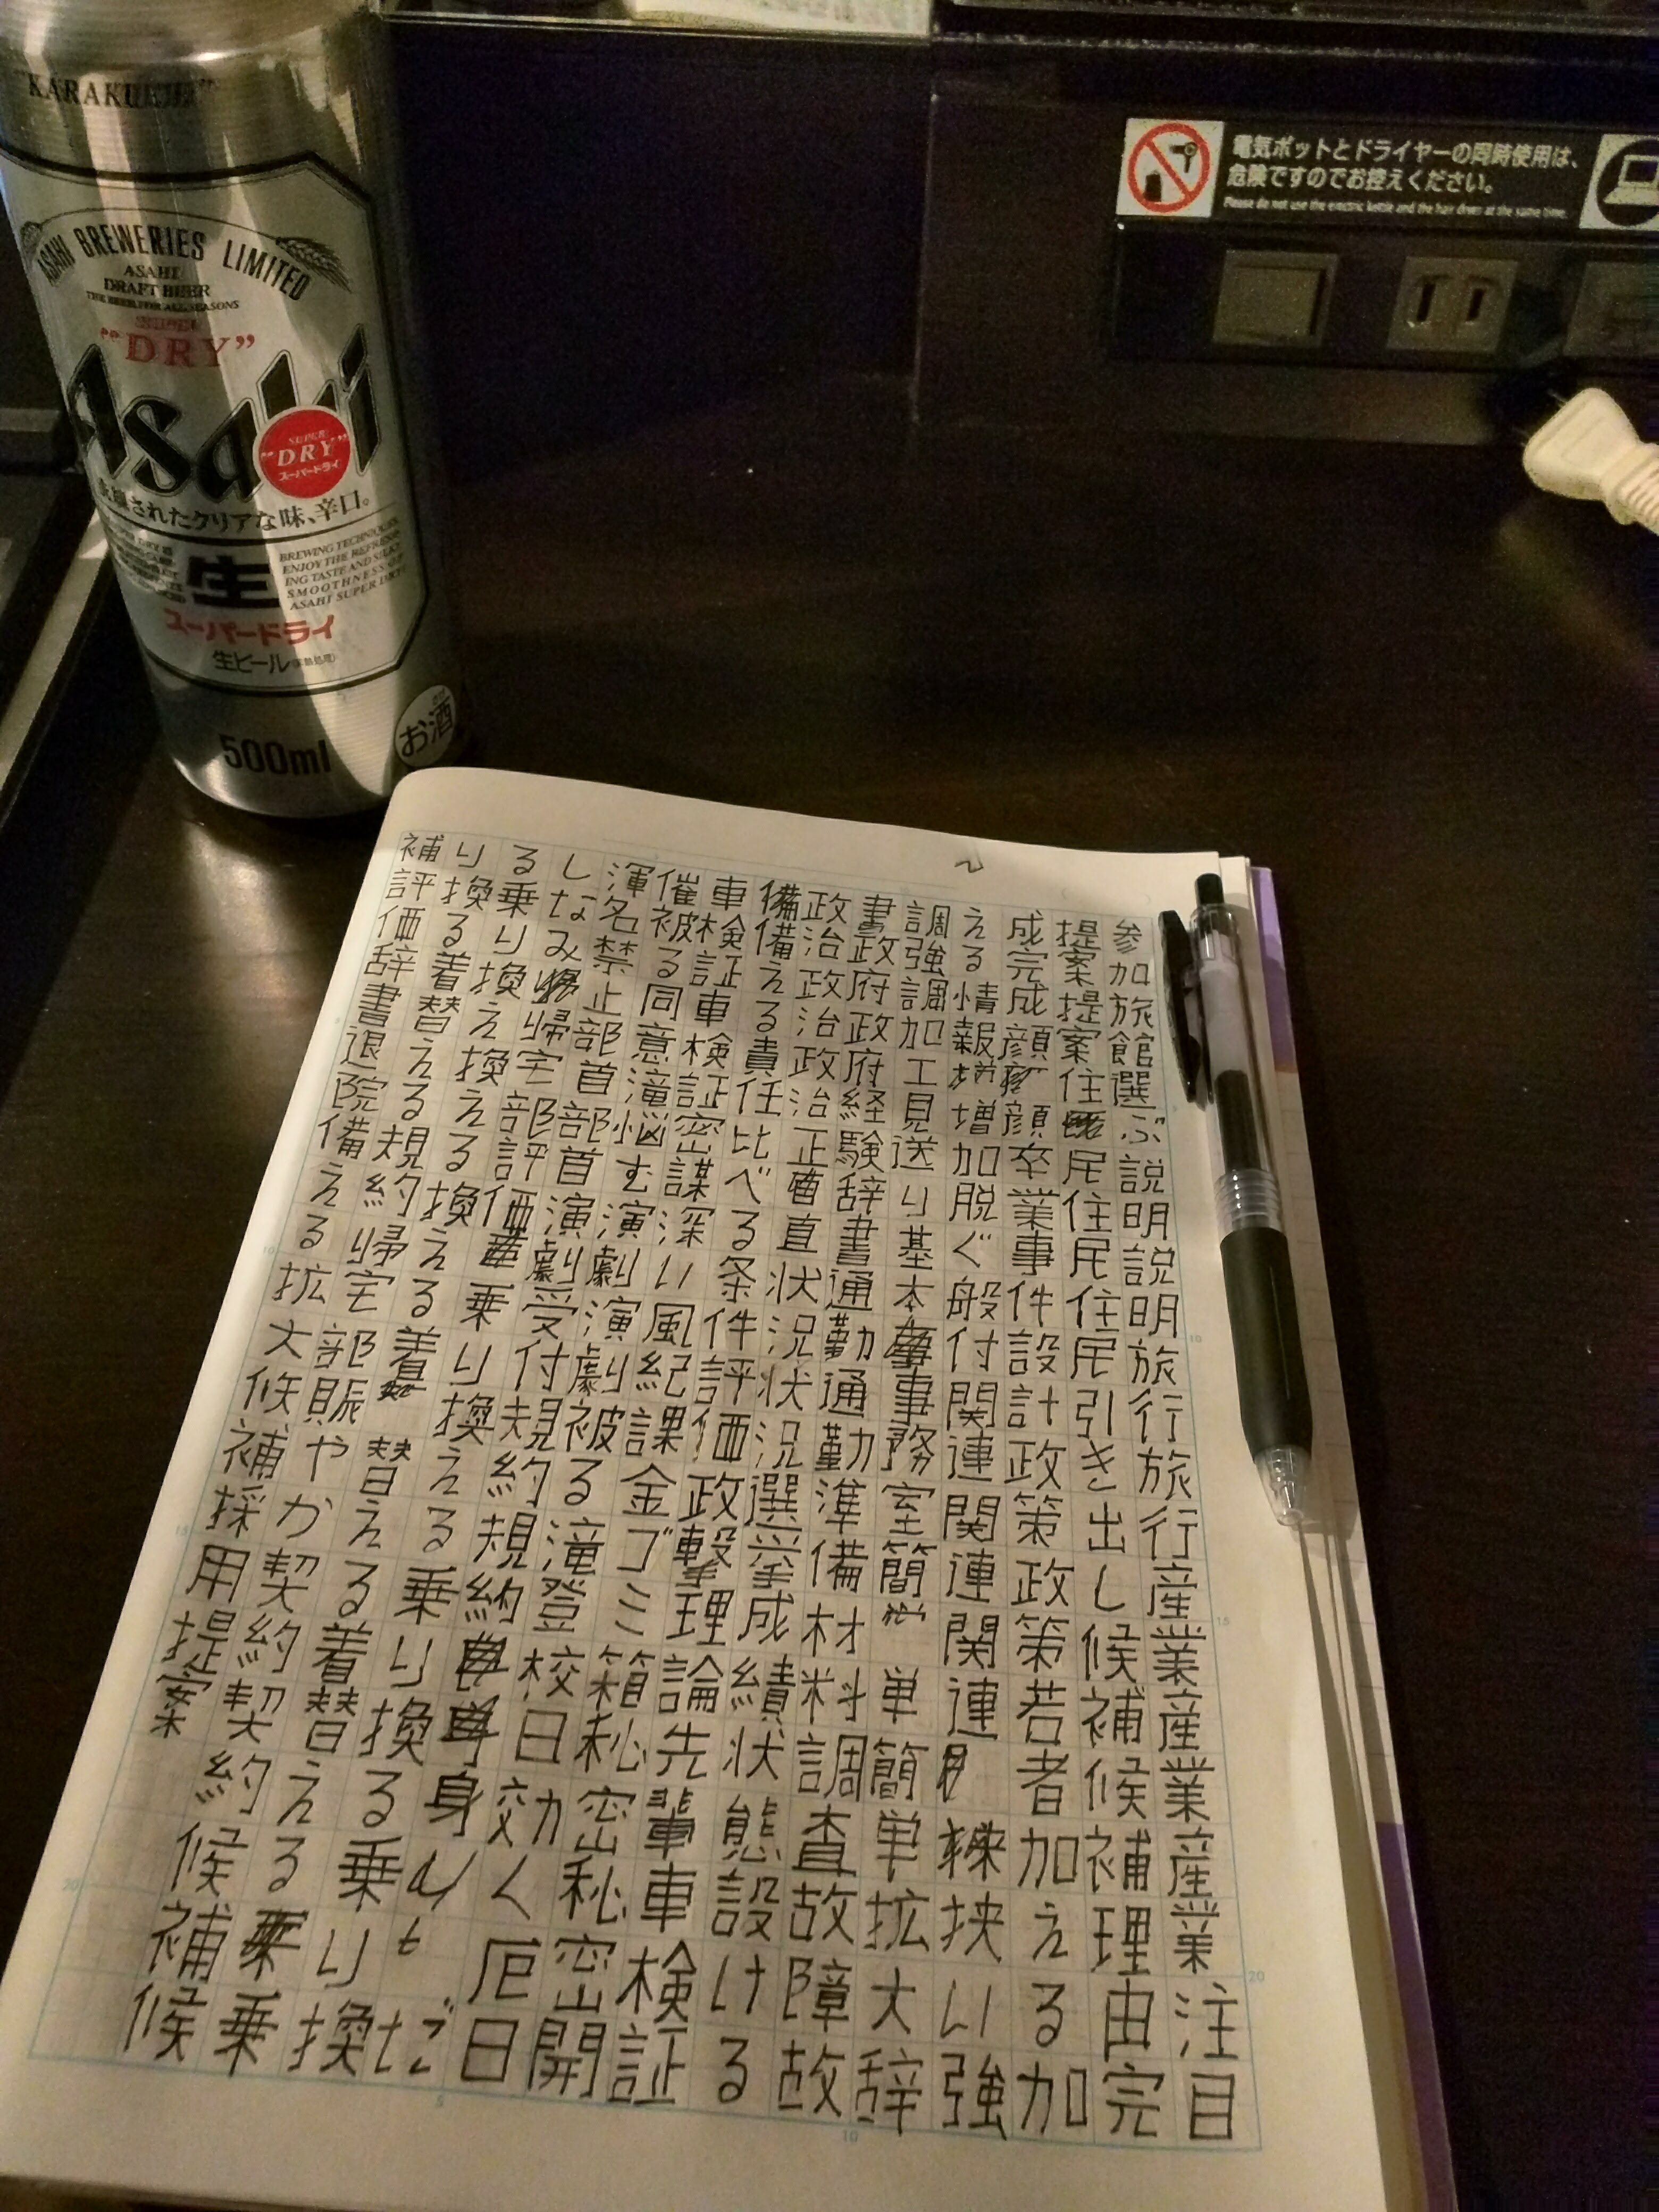 "KARAKUCHI"
ASAHI BREWERIES LIMITED
ASAHI
DRAFT BEER
THE BEER FOR ALL SEASONS
SUPER
"DRY"
Asahi
SUPER
"DRY"
スーパードライ
されたクリアな味、辛口。
生
BREWING TECHNIQUES
ENJOY THE REFRESH-
ING TASTE AND SILKY
SMOOTHNESS OF
ASAHI SUPER DRY
スーパードライ
生ビール
500ml
お酒
電気ポットとドライヤーの同時使用は、
危険ですのでお控えください。
Please do not use the electric kettle and the hair dryer at the same time.
参加旅館選ぶ説明説明旅行旅行産業産業産業注目
提案提案住民住民住民引き出し候補候補理由完
成完成顔顔卒業事件設計政策政策若者加える加
える情報増加脱ぐ般付関連関連関連練挟い強
調強調加工見送り基本事務室簡単簡単拡大辞
書政府政府経験辞書通勤通勤準備材料調査故障故
政治政治政治正直直状況状況選挙成績状態設ける
備備える責任比べる条件評価政撃理論先輩車検証
車検証車検証密謀深い風紀課金ゴミ箱秘密秘密開
催被る同意滝悩む演劇演劇被る滝登校日効く厄日
渾名禁止部首部首演劇受付規約規約身だ
しなみ帰宅部評価乗り換える乗り換える乗り換
る乗り換え換える換える着替える着替える乗
り換る着替える規約帰宅部賑やか契約契約候補候
補評価辞書退院備える拡大候補採用提案